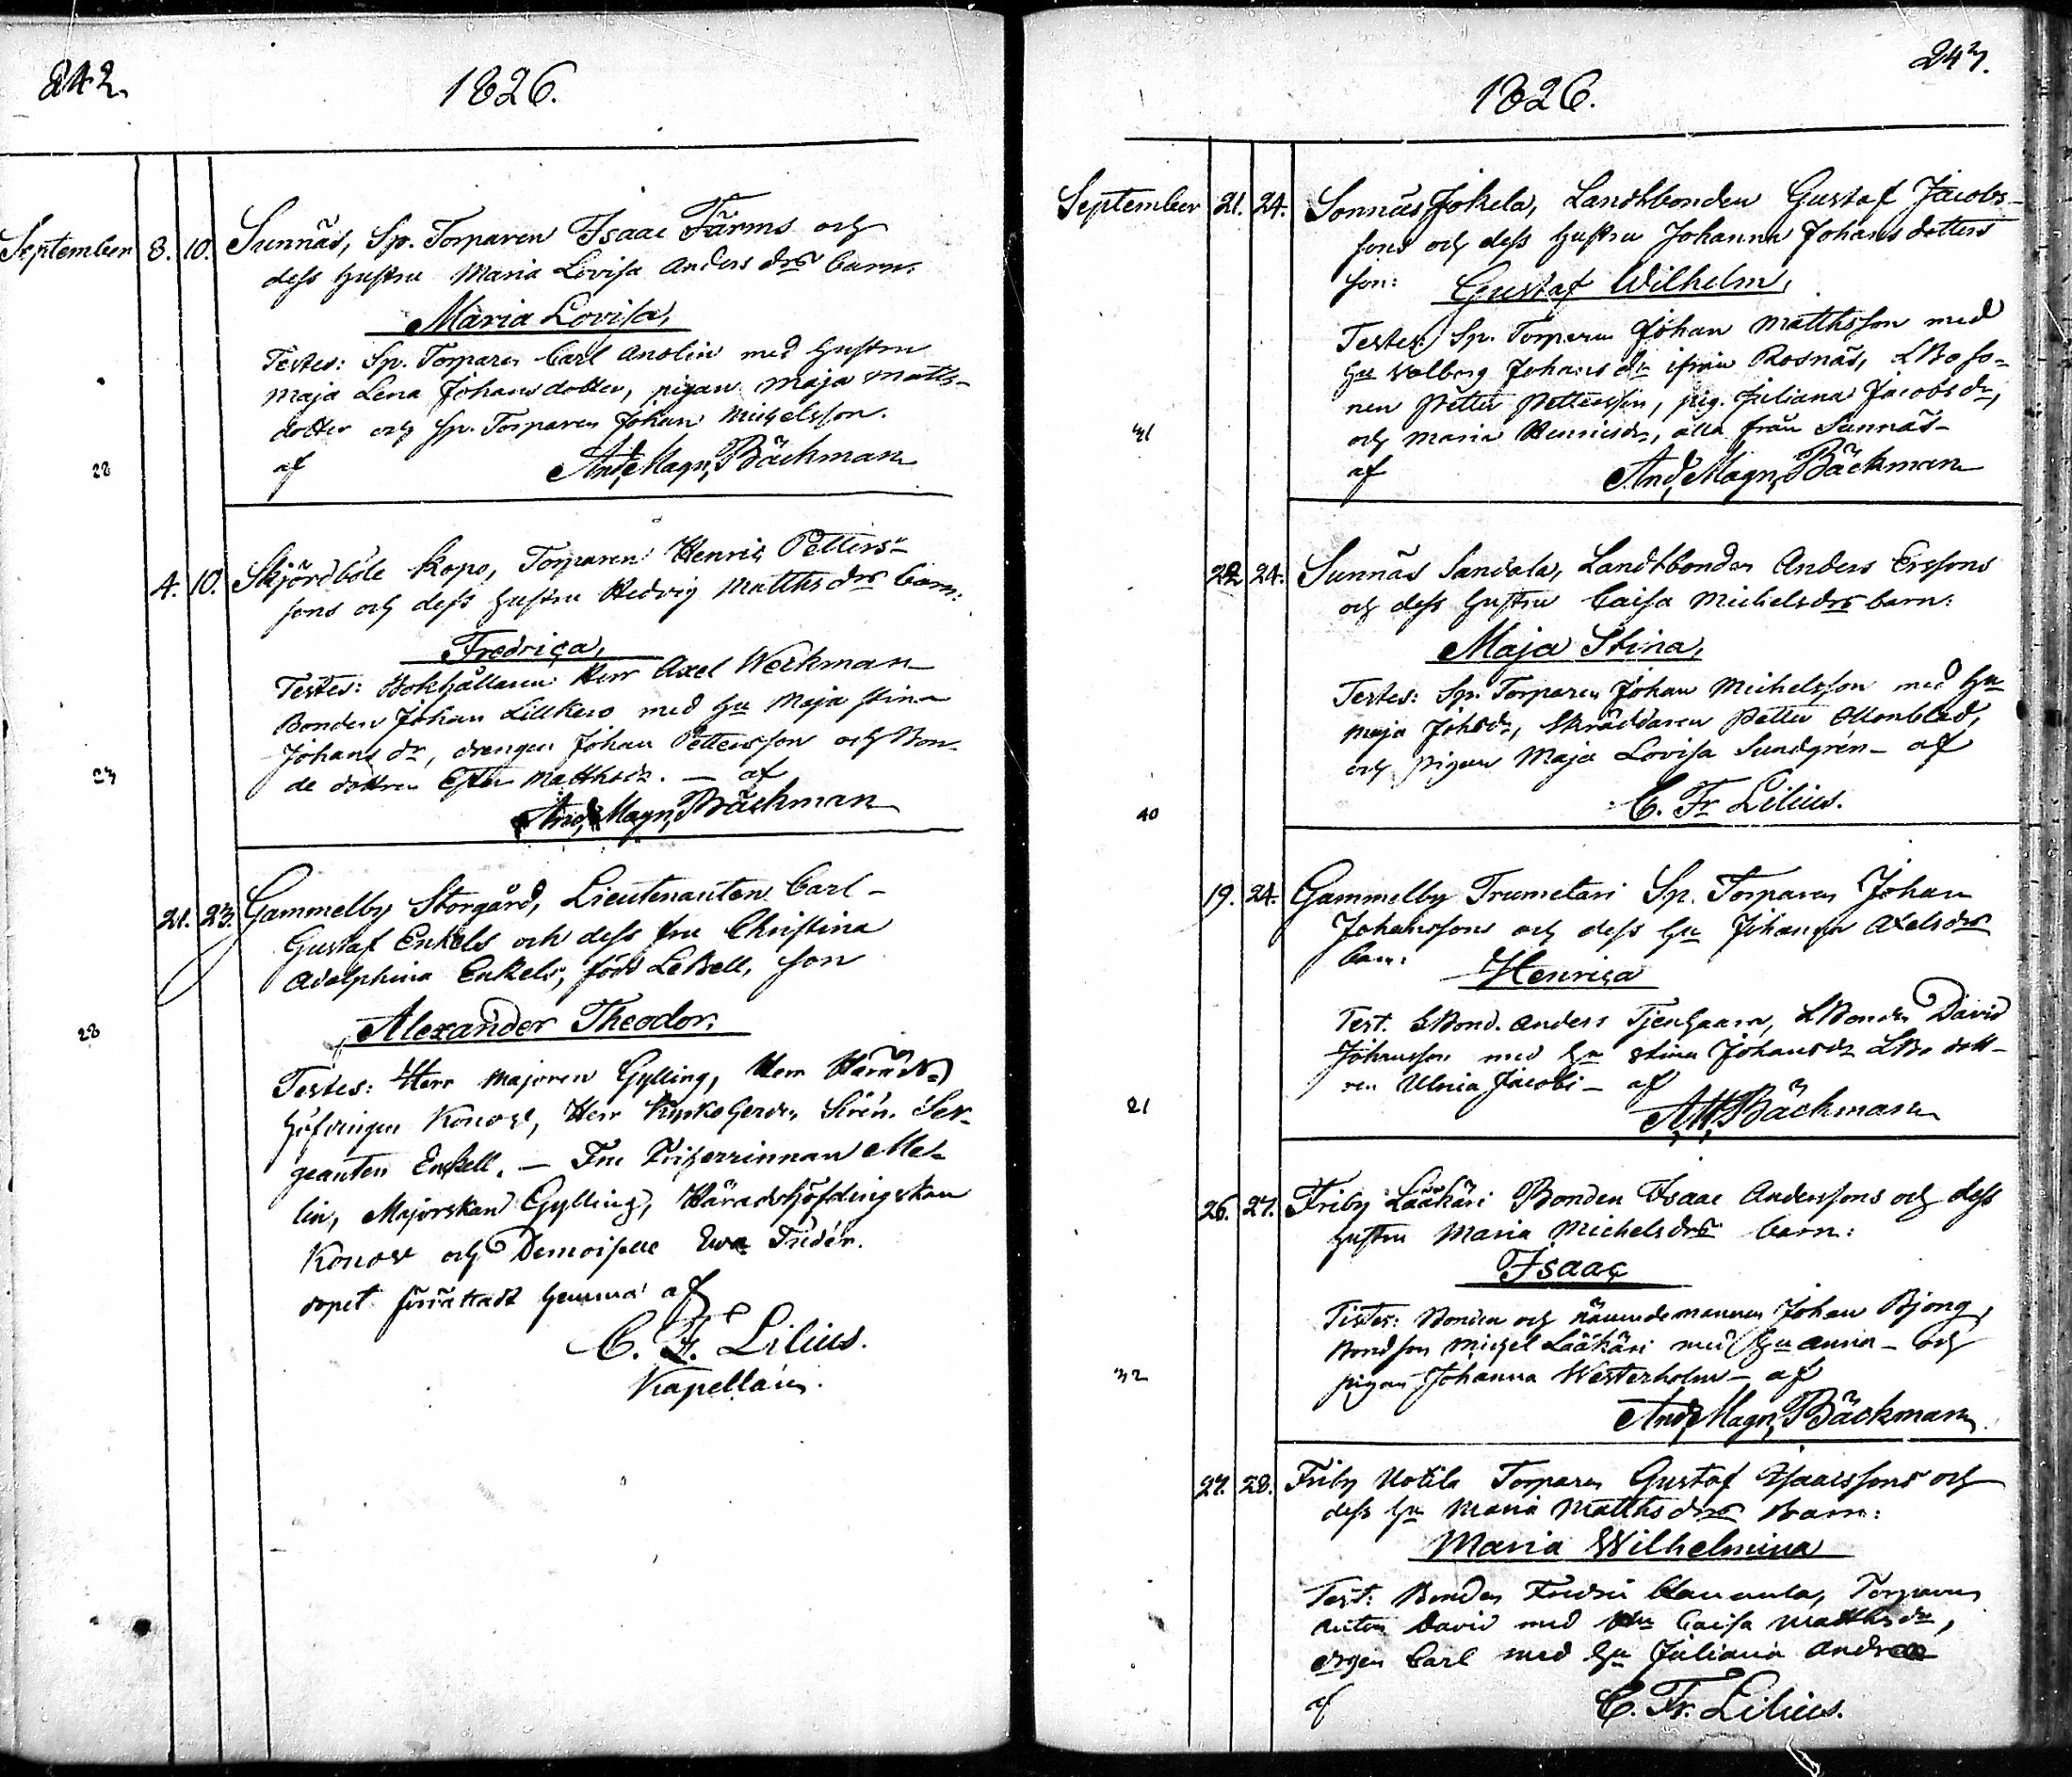 242.
1826.
September 8. 10. Sunnäs, Sp. Torparen Isaac Färms och
dess hustru Maria Lovisa Anders drs barn:
Maria Lovisa,
Testes: Sp. Torparen Carl Anslin med hustru
Maja Lena Johansdotter, pigan Maja Matts-
dotter och Sp. Torparen Johan Michelsson.
28
af And. Magn. Bäckman
4. 10. Skjördböle Kopo, Torparen Henric Petters-
sons och dess hustru Hedvig Matths drs barn:
Fredrica,
Testes: Bokhållaren Herr Axel Weckman
Bonden Johan Lillkero med hu Maja Stina
Johans dr, drengen Johan Pettersson och Bon-
de dottren Ester Matthsdr. — af
23
And. Magn. Bäckman
21. 23. Gammelby Storgård, Lieutenanten Carl
Gustaf Enkels och dess fru Christina
Adolphina Enkels, född LeBell, son
Alexander Theodor.
28
Testes: Herr Majoren Gylling, Herr Härads-
höfdingen Konow, Herr Kyrkoherden Sirén. Ser-
geanten Enkell. — Fru Friherrinnan Mel-
lin, Majorskan Gylling, Häradshöfdingskan
Konow och Demoiselle Eva Fridén.
dopet förrättadt hemma af
C. F. Lilius.
Kapellan.
243.
1826.
September 21. 24. Sonnäs Jokela, Landtbonden Gustaf Jacobs-
sons och dess hustru Johanna Johans dotters
son: Gustaf Wilhelm,
Testes: Sp. Torparen Johan Matthsson med
hu Valborg Johans dr ifrån Rosnäs, LBo so-
nen Petter Pettersson, pig. Juliana Jacobs dr,
31
och Maria Henricsdr, alla från Sunnäs-
af And. Magn. Bäckman
22 24. Sunnäs Sandala, Landtbonden Anders Erssons
och dess hustru Caisa Michelsdrs barn:
Maja Stina,
Testes: Sp. Torparen Johan Michelsson med hu
Maja Johsdr, Skräddaren Petter Ottenblad,
och pigan Maja Lovisa Sundgrén - af
40
C. Fr Lilius.
19. 24. Gammelby Trumetari Sp. Torparen Johan
Johanssons och dess hu Johanna Axelsdrs
barn: Henrica
Test. LBond. Anders Tjenhaara, LBonden David
Johansson med hu Stina Johansdr LBo dott-
ren Ulrica Jacobs - af
21
A. M. Bäckman
26. 27. Friby Lääkäri Bonden Isaac Anderssons och dess
hustru Maria Michelsdrs barn:
Isaac
Testes: Bonden och nämndemannen Johan Bjong,
Bondson Michel Lääkäri med hu Anna - och
32
pigan Johanna Westerholm - af
And. Magn. Bäckman
27. 28. Friby Uotila Torparen Gustaf Isaacssons och
dess hu Maria Matths drs Barn:
Maria Wilhelmina
Test: Bonden Fredric Hannula, Torparen
David med Hu Caisa Matths dr,
drgen Carl med hu Juliana Anders
af C. Fr. Lilius.